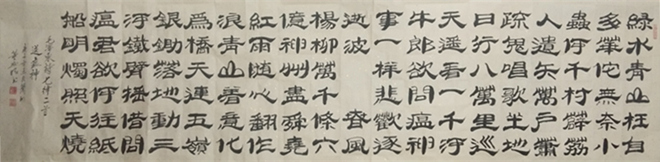 綠水青山枉自
多華佗無奈小
蟲何千村薜荔
人遺矢萬戶蕭
疏鬼唱歌坐地
日行八萬里巡
天遙看一千河
牛郎欲問瘟神
事一樣悲歡逐
逝波 春風
楊柳萬千條六
億神州盡舜堯
紅雨隨心翻作
浪青山着意化
為橋天連五嶺
銀鋤落地動三
河鐵臂搖借問
瘟君欲何往紙
船明燭照天燒
毛澤東詩七律二首
送瘟神